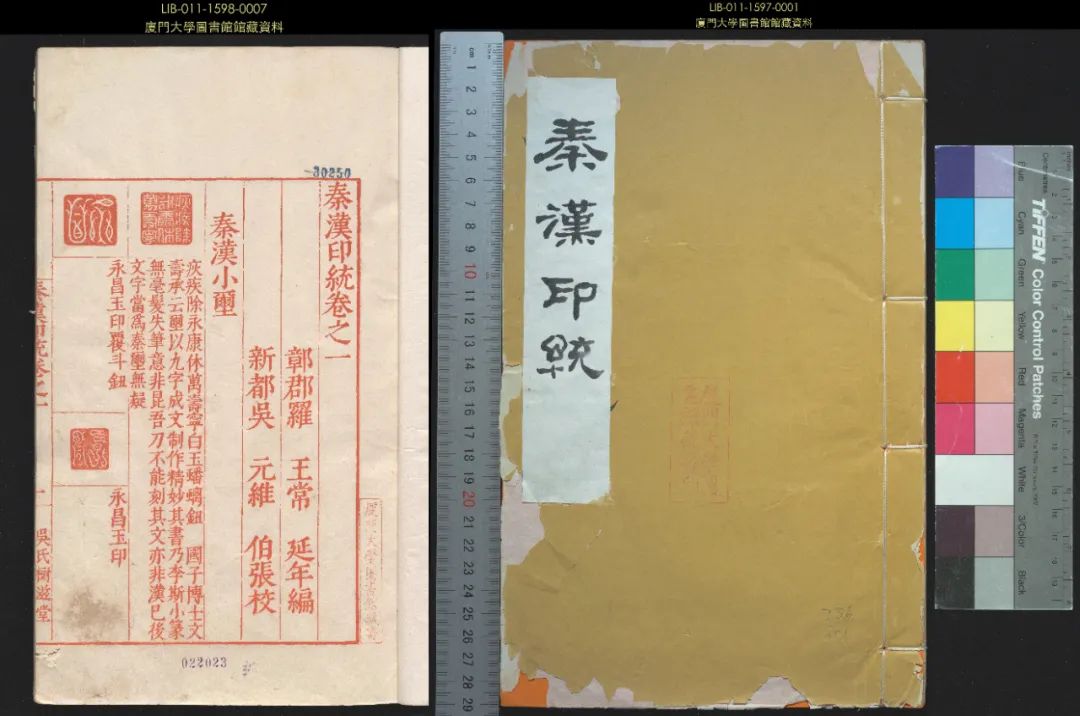 LIB-011-1598-0007
廈門大學圖書館館藏資料
30250
秦漢印統卷之一
鄣郡羅 王常 延年編
新都吳 元維 伯張校
秦漢小璽
疢疾除永康休萬壽寧白玉蟠螭鈕 國子博士文
壽承云璽以九字成文制作精妙其書乃李斯小篆
無毫髮失筆意非昆吾刀不能刻其文亦非漢已後
文字當為秦璽無疑
永昌玉印覆斗鈕
永昌玉印
秦漢印統卷之一
一
吳氏樹滋堂
022023
LIB-011-1597-0001
廈門大學圖書館館藏資料
秦漢印統
cm 1 2 3 4 5 6 7 8 9 10 11 12 13 14 15 16 17 18 19 20 21 22 23 24 25 26 27 28 29
TIFFEN Color Control Patches
Blue
Cyan
Green
Yellow
Red
Magenta
White
3/Color
Black
Centimetres